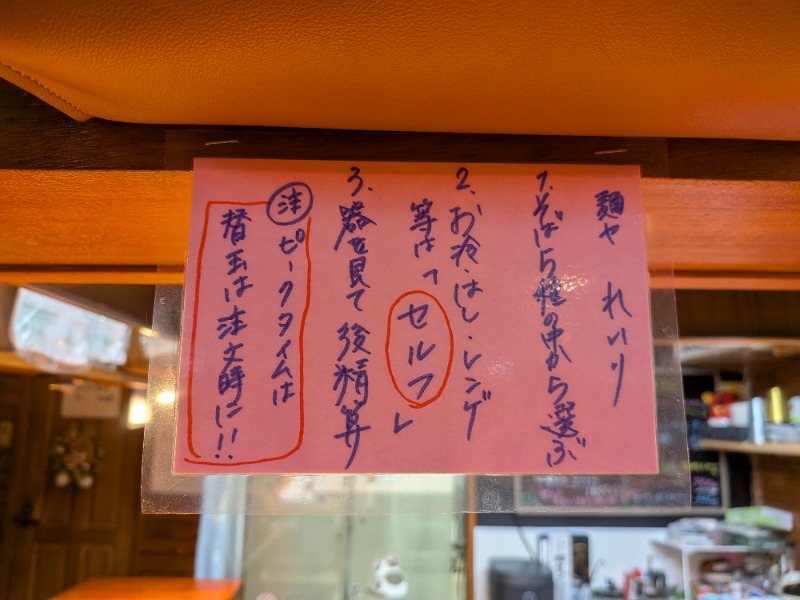 麺や れいり
1.そば5種の中から選ぶ
2.お冷・はし・レンゲ
等は「セルフ」
3.器を見て後精算
注 ピークタイムは
替玉は注文時に!!